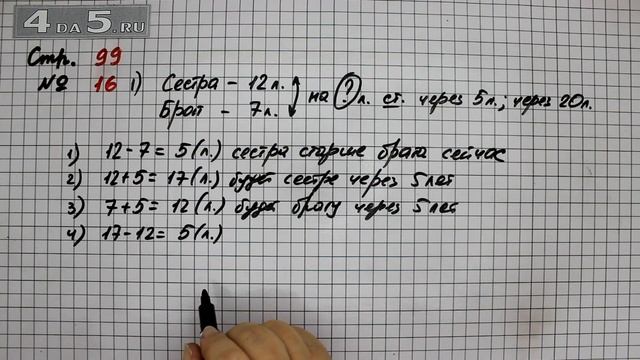 4 DA 5.RU
Стр. 99
№ 16 1) Сестра – 12 л.
Брат – 7 л. на ? л. ст. через 5 л.; через 20 л.
1) 12 - 7 = 5 (л.) сестра старше брата сейчас
2) 12 + 5 = 17 (л.) будет сестре через 5 лет
3) 7 + 5 = 12 (л.) будет брату через 5 лет
4) 17 - 12 = 5 (л.)